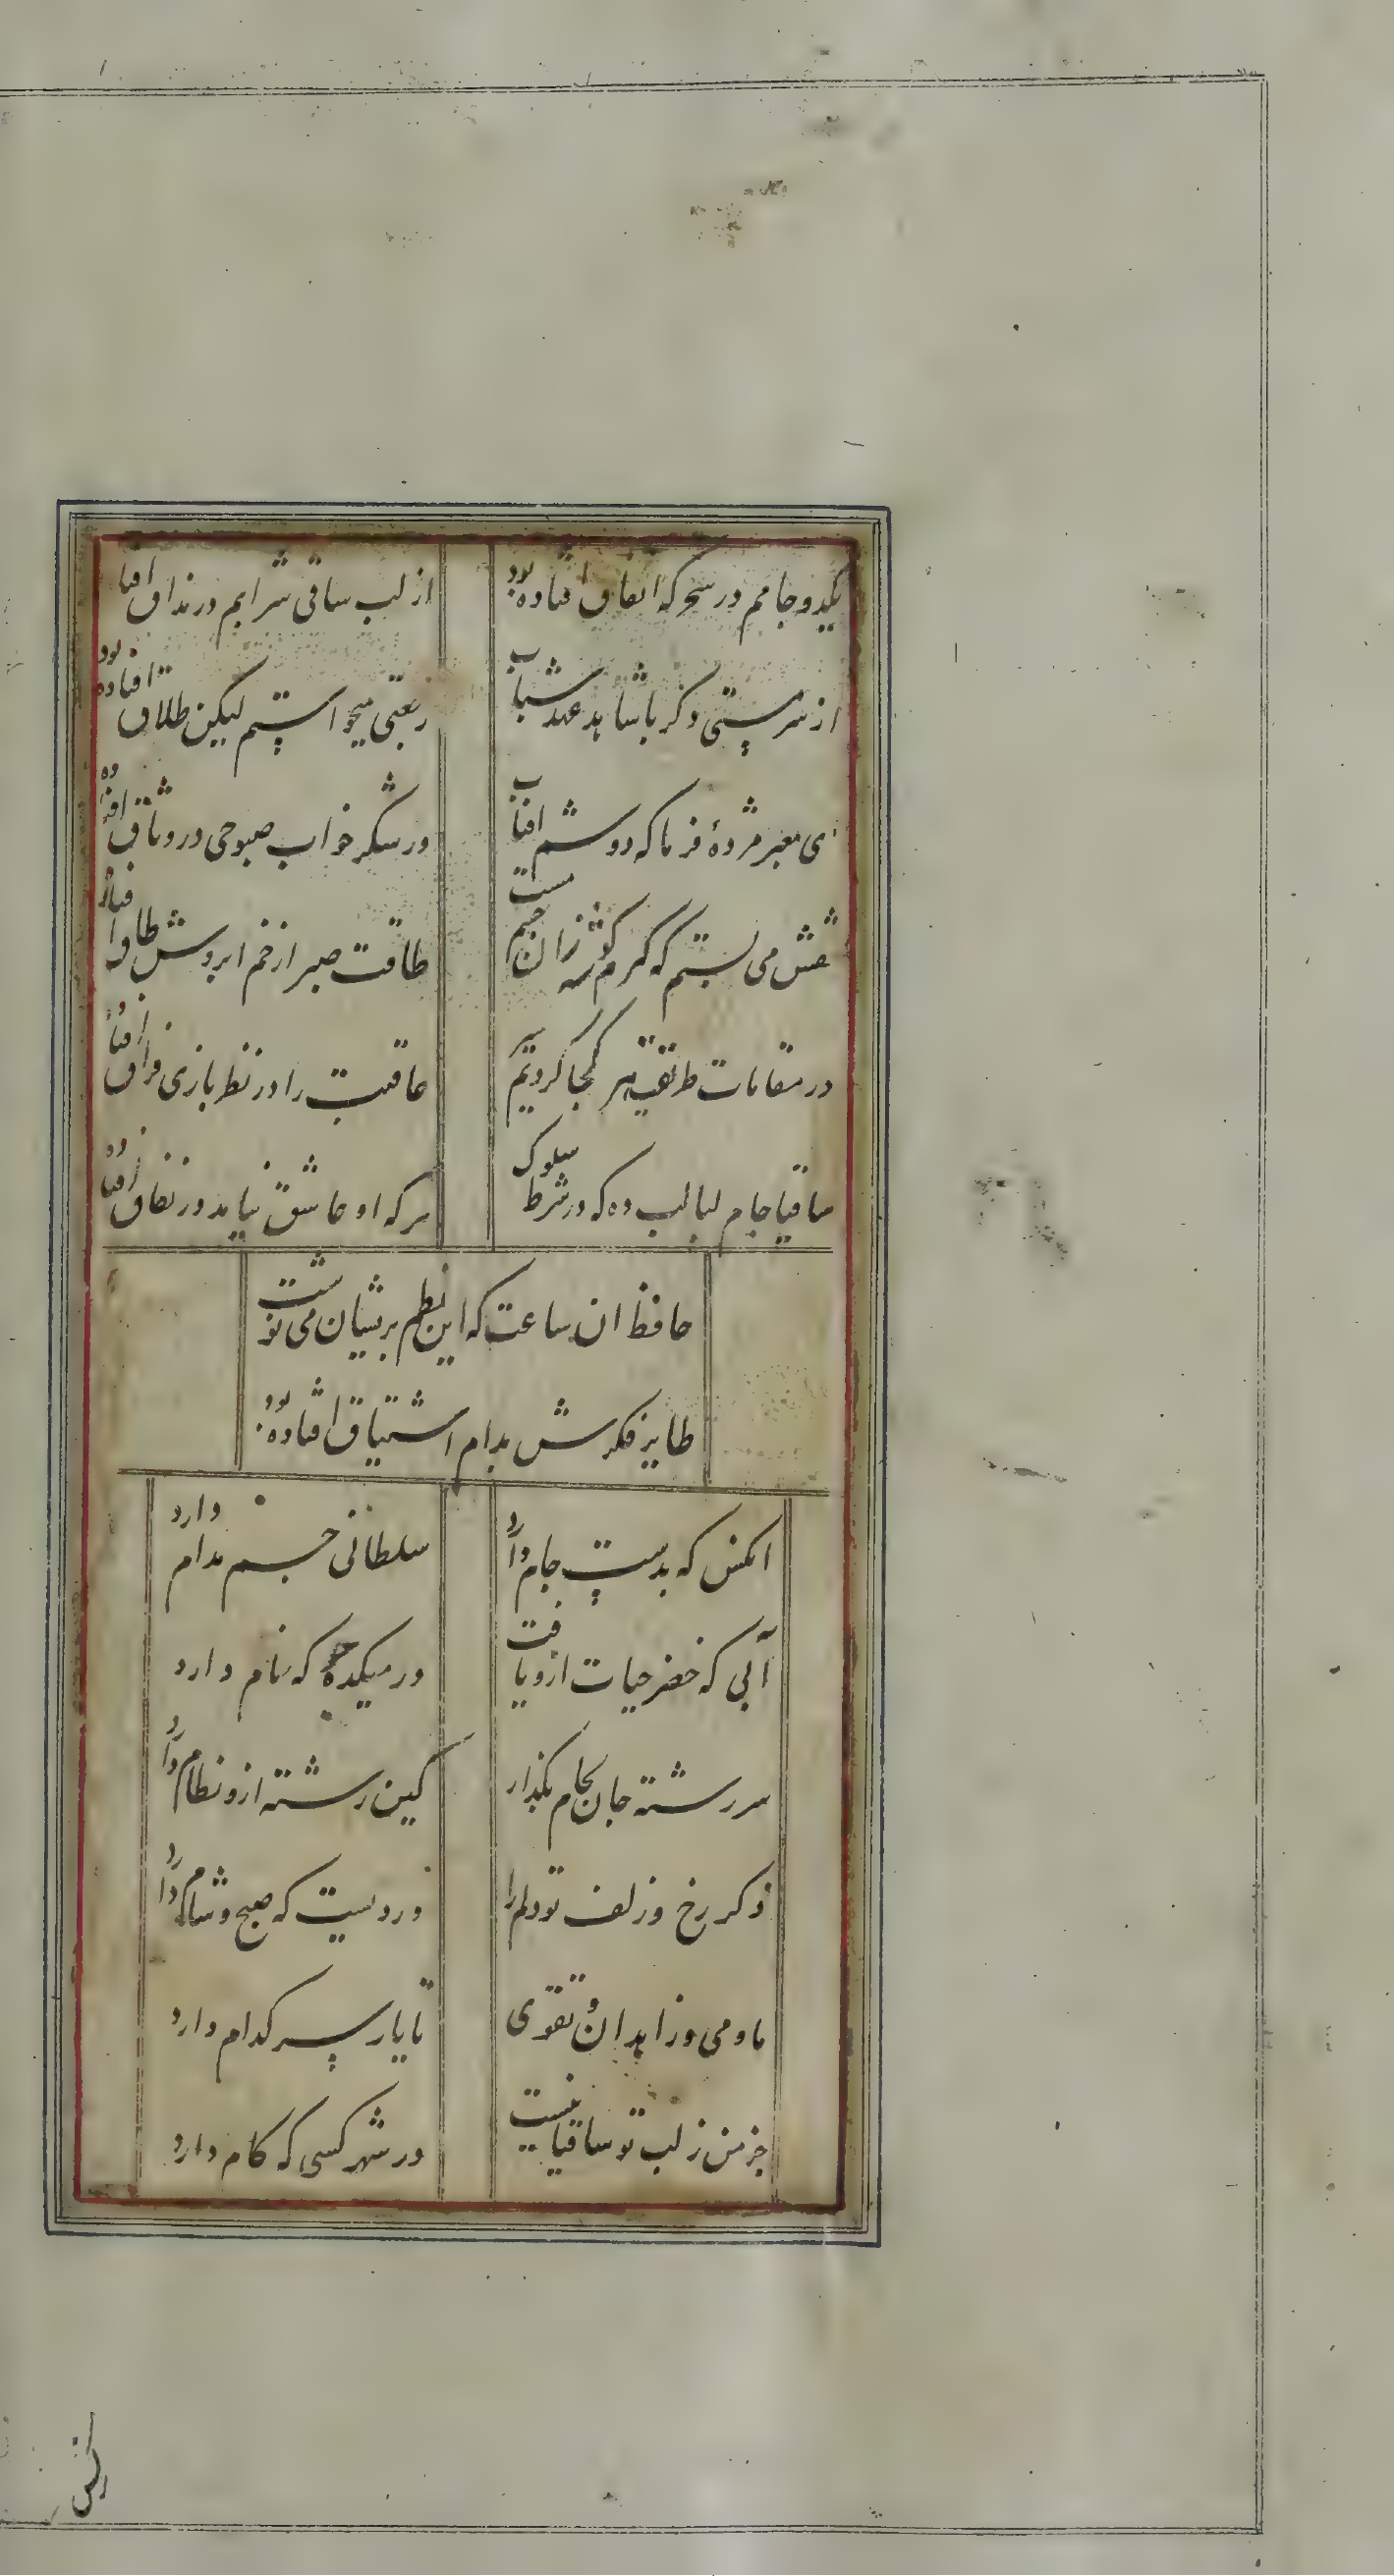 یکدو جامم در سحرکه اتفاق افتاده بود
از لب ساقی شرابم در مذاق افتا
از سر مستی دکر با شاهد عهد شباب
رجعتی میخواستم لیکن طلاق افتاده بود
ی معبر مژدهٔ فرما که دوشم افتاب
در شکر خواب صبوحی در وثاق افتاده
نقش می بستم که کیرم کوشه زان چشم مست
طاقت صبر از خم ابروش طاق افتاد
در مقامات طریقت هر کجا کردیم سیر
عاقبت را در نظر بازی فراق افتاده
ساقیا جام لبالب ده که در شرط سلوک
هر که او عاشق نیامد در نفاق افتاده
حافظ ان ساعت که این نظم پریشان می نوشت
طایر فکرش بدام اشتیاق افتاده بود
انکس که بدست جام دارد
سلطانی جم مدام دارد
آبی که خضر حیات ازو یافت
در میکده جو که نام دارد
سر رشته جان بجام بکذار
کین رشته ازو نظام دارد
ذکر رخ و زلف تو دلم را
وردیست که صبح و شام دارد
ما و می و زاهدان و تقوی
تا یار سر کدام دارد
جز من ز لب تو ساقیا نیست
در شهر کسی که کام دارد